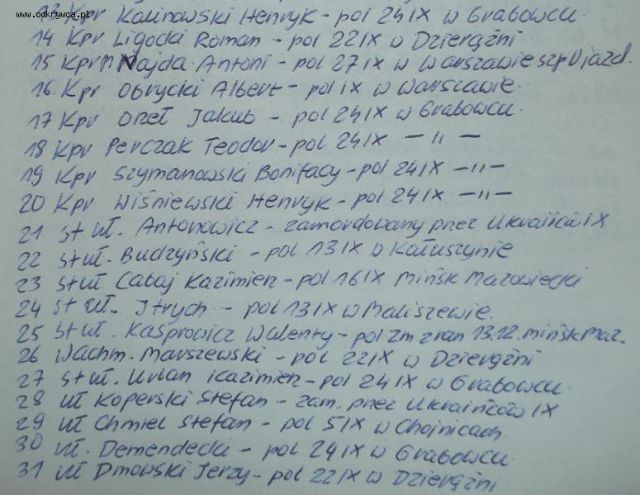 www.odkrywca.pl
13 Kpr Kalinowski Henryk - pol 24 IX w Grabowcu
14 Kpr Ligocki Roman - pol 22 IX w Dzierąźni
15 Kpr Najda Antoni - pol 27 IX w Warszawie szp Ujazd.
16. Kpr Obrycki Albert - pol IX w Warszawie
17 Kpr Orzeł Jakub - pol 24 IX w Grabowcu.
18 Kpr Perczak Teodor - pol 24 IX — " —
19 Kpr Szymanowski Bonifacy - pol 24 IX — " —
20 Kpr Wiśniewski Henryk - pol 24 IX — " —
21 st uł. Antonowicz - zamordowany przez Ukraińców IX
22 st uł. Budzyński - pol 13 IX w Kałuszynie
23 st uł Cabaj Kazimierz - pol 16 IX Mińsk Mazowiecki
24 st uł. Jtrych - pol 13 IX w Maliszewie.
25 st uł. Kasprowicz Walenty - pol zm z ran 13.12. Mińsk Maz.
26 Wachm. Marszewski - pol 22 IX w Dzierąźni
27 st uł. Urban Kazimierz - pol 24 IX w Grabowcu.
28 uł Koperski Stefan - zam. przez Ukraińców IX
29 uł Chmiel Stefan - pol 5 IX w Chojnicach.
30 uł. Demendecki - pol 24 IX w Grabowcu.
31 uł Dmowski Jerzy - pol 22 IX w Dzierąźni